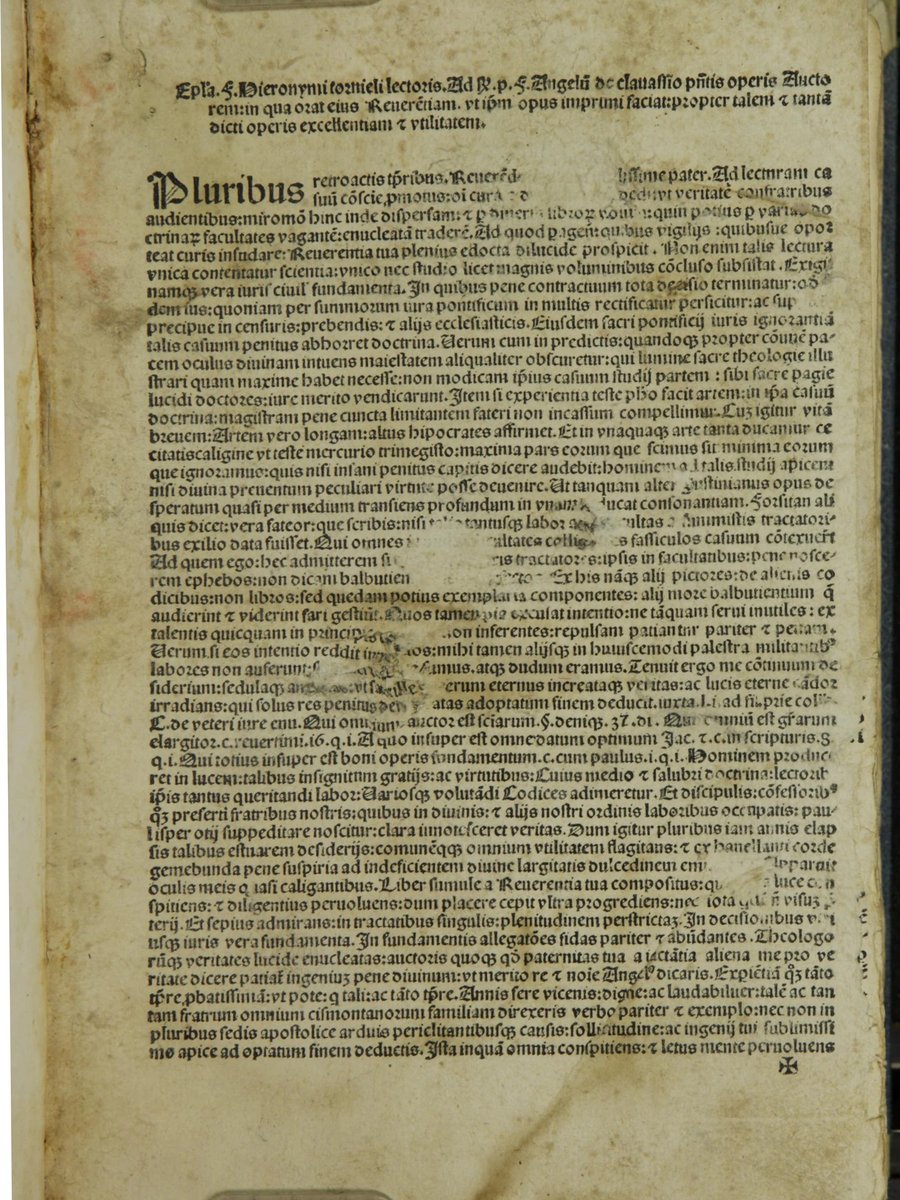 Epl'a. F. Hieronymi tornieli lectoris. Ad R̃. p. F. Angelũ de clauassio pñtis operis Aucto
rem: in qua orat eius Reuerẽtiam. vt ip̃m opus imprimi faciat: propter talem ⁊ tantã
dicti operis excellentiam ⁊ vtilitatem.
Pluribus retroactis tp̃ribus. Reuerẽd issime pater. Ad lecturam ca
suũ cõscie, oi cura vt veritatẽ contratribus
audientibus: miromõ hinc inde dispersam: ⁊ p quin potius p
ctrinaꝝ facultates vagantẽ: enucleatã traderẽ. Ad quod vigilijs: quibusue opor
teat curis insudare: Reuerentia tua plenius edocta dilucide prospicit. Non enim talis lectura
vnica contentatur scientia: vnico nec studio licet magnis voluminibus cõcluso subsistat. Exigi
namqꝫ vera iuris ciuil' fundamenta. In quibus pene contractuum tota decisio terminatur:
dem ius: quoniam per summorum iura pontificum in multis rectificatur perficitur: ac sup
precipue in censuris: prebendis: ⁊ alijs ecclesiasticis. Eiusdem sacri pontificij iuris ignorantiã
talis casuum penitus abhorret doctrina. Uerum cum in predictis: quandoqꝫ propter cõmẽ pa
cem oculus diuinam intuens maiestatem aliqualiter obscuretur: qui lumine sacre theologie illu
strari quam maxime habet necesse: non modicam ip̃ius casuum studij partem: sibi sacre pagie
lucidi doctores: iure merito vendicarunt. Item si experientia teste pho facit artem: in ip̃a casuũ
doctrina: magistram pene cuncta limitantem fateri non incassum compellimur. Cuꝫ igitur vitã
breuem: Artem vero longam: altus hipocrates affirmet. Et in vnaquaqꝫ arte tanta ducamur ce
citatis caligine vt teste mercurio trimegisto: maxima pars eorum que scimus sit minima eorum
que ignoramus: quis nisi insani penitus capitis dicere audebit: talis studij apicem
nisi diuina preuentum peculiari virtute posse deuenire. Ut tanquam alter opus de
speratum quasi per medium transiens profundum in ducat consonantiam. Forsitan ali
quis dicet: vera fateor: que scribis: nisi labor tractatori
bus exilio data fuisset. Qui omnes fasciculos casuum cõtexuerũ
Ad quem ego: hec admitterem si tractatores: ipsis in facultatibus:
rem ephebos: non dicam balbutien Ex his nãqꝫ alij pictores: de alienis co
dicibus: non libros: sed quedam potius exemplaria componentes: alij more balbutientium q̃
audierint ⁊ viderint fari gestiũt. Quos tamen excusat intentio: ne tãquam serui inutiles: ex
talentis quicquam in non inferentes: repulsam patiantur pariter ⁊ penam.
Uerum si eos intentio reddit mihi tamen alijsqꝫ in huiuscemodi palestra militantibꝰ
labores non auferunt: atqꝫ dudum eramus. Tenuit ergo me cõtinuum de
siderium: sedulaqꝫ eternus increataqꝫ veritas: ac lucis eterne cãdor
irradians: qui solus res penitus adoptatum finem deducit. iuxta
C. de veteri iure enu. Qui auctor est sciarum. §. deniqꝫ. 37. di. est grãrum
elargitor. c. reuertimi. 16. q. i. A quo insuper est omne datum optimum Jac. ⁊. c. in scripturis. 8
q. i. Qui totius insuper est boni operis fundamentum. c. cum paulus. i. q. i. Hominem produce
ret in lucem: talibus insignitum gratijs: ac virtutibus: Cuius medio ⁊ salubri doctrina: lectorib
ip̃is tantus queritandi labor: Uariosqꝫ volutãdi Codices adimeretur. Et discipulis: cõfessoribꝰ
qꝫ presertī fratribus nostris: quibus in diuinis: ⁊ alijs nostri ordinis laboribus occupatis: pau
lisper otij suppeditare noscitur: clara innotesceret veritas. Dum igitur pluribus iam annis elap
sis talibus estuarem desiderijs: comunẽqꝫ omnium vtilitatem flagitans: ⁊ ex hanellanti corde
gemebunda pene suspiria ad indeficientem diuine largitatis dulcedinem
oculis meis quasi caligantibus. Liber summule a Reuerentia tua compositus:
spitiens: ⁊ diligentius peruoluens: dum placere cepit vltra progrediens: nec iota
terij. Et sepius admirans: in tractatibus singulis: plenitudinem perstrictaꝫ. In decisionibus
usqꝫ iuris vera fundamenta. In fundamentis allegatões fidas pariter ⁊ abũdantes. Theologo
rũqꝫ veritates lucide enucleatas: auctoris quoqꝫ qõ paternitas tua aliena me pro ve
ritate dicere patiat̃ ingeniuꝫ pene diuinum: vt merito re ⁊ noie Angelꝰ dicaris. Expiẽtiã qꝫ tãto
tp̃re p̱batissimã: vt pote: q̃ tali: ac tãto tp̃re. Annis fere vicenis: digne: ac laudabiluer: talẽ ac tan
tam fratrum omnium cismontanorum familiam direxeris verbo pariter ⁊ exemplo: nec non in
pluribus sedis apostolice arduis periclitantibusqꝫ causis: sollicitudine: ac ingenij tui sublimissi
mo apice ad optatum finem deductis. Ista inquã omnia conspitiens: ⁊ letus mente peruoluens
✠